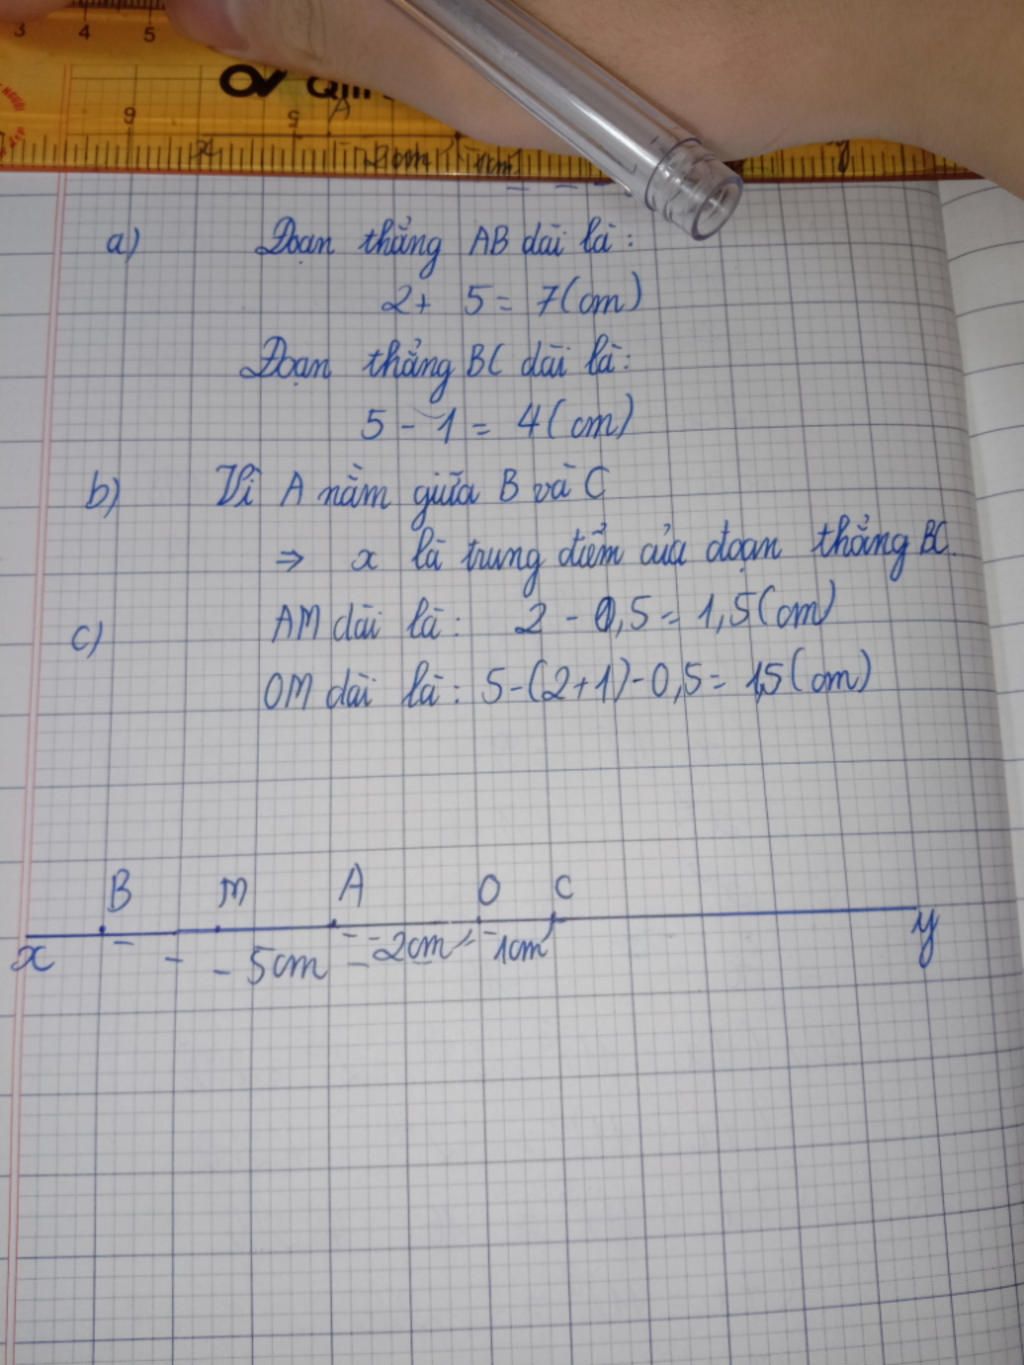 3 4 5
6 5 A
x 2cm 1cm y
a) Đoạn thẳng AB dài là:
2 + 5 = 7 (cm)
Đoạn thẳng BC dài là:
5 - 1 = 4 (cm)
b) Vì A nằm giữa B và C
⇒ x là trung điểm của đoạn thẳng BC.
c) AM dài là: 2 - 0,5 = 1,5 (cm)
OM dài là: 5-(2+1)-0,5 = 1,5 (cm)
B M A O C
x 5cm 2cm 1cm y